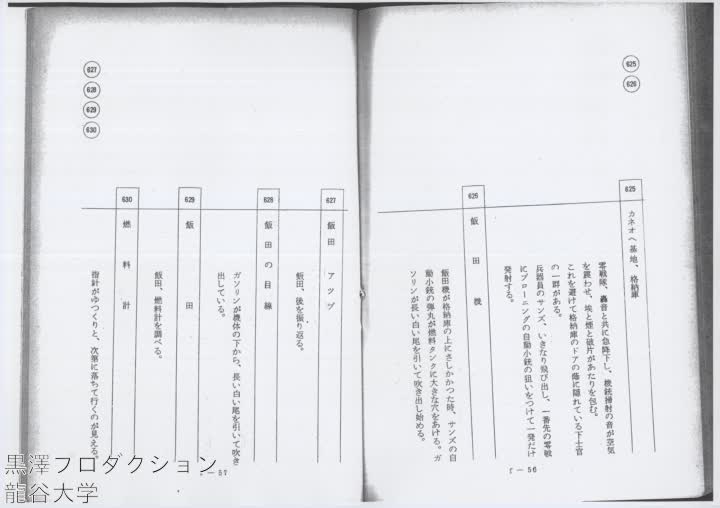 625
626
625
カネオヘ基地、格納庫
零戦隊、轟音と共に急降下し、機銃掃射の音が空気
を震わせ、埃と煙と破片があたりを包む。
これを避けて格納庫のドアの蔭に隠れている下士官
の一群がある。
兵器員のサンズ、いきなり飛び出し、一番先の零戦
にブローニングの自動小銃の狙いをつけて一発だけ
発射する。
626
飯田機
飯田機が格納庫の上にさしかかつた時、サンズの自
動小銃の弾丸が燃料タンクに大きな穴をあける。ガ
ソリンが長い白い尾を引いて吹き出し始める。
r－56
627
628
629
630
627
飯田 アツプ
飯田、後を振り返る。
628
飯田の目線
ガソリンが機体の下から、長い白い尾を引いて吹き
出している。
629
飯田
飯田、燃料計を調べる。
630
燃料計
指針がゆつくりと、次第に落ちて行くのが見える。
r－57
黒澤プロダクション
龍谷大学